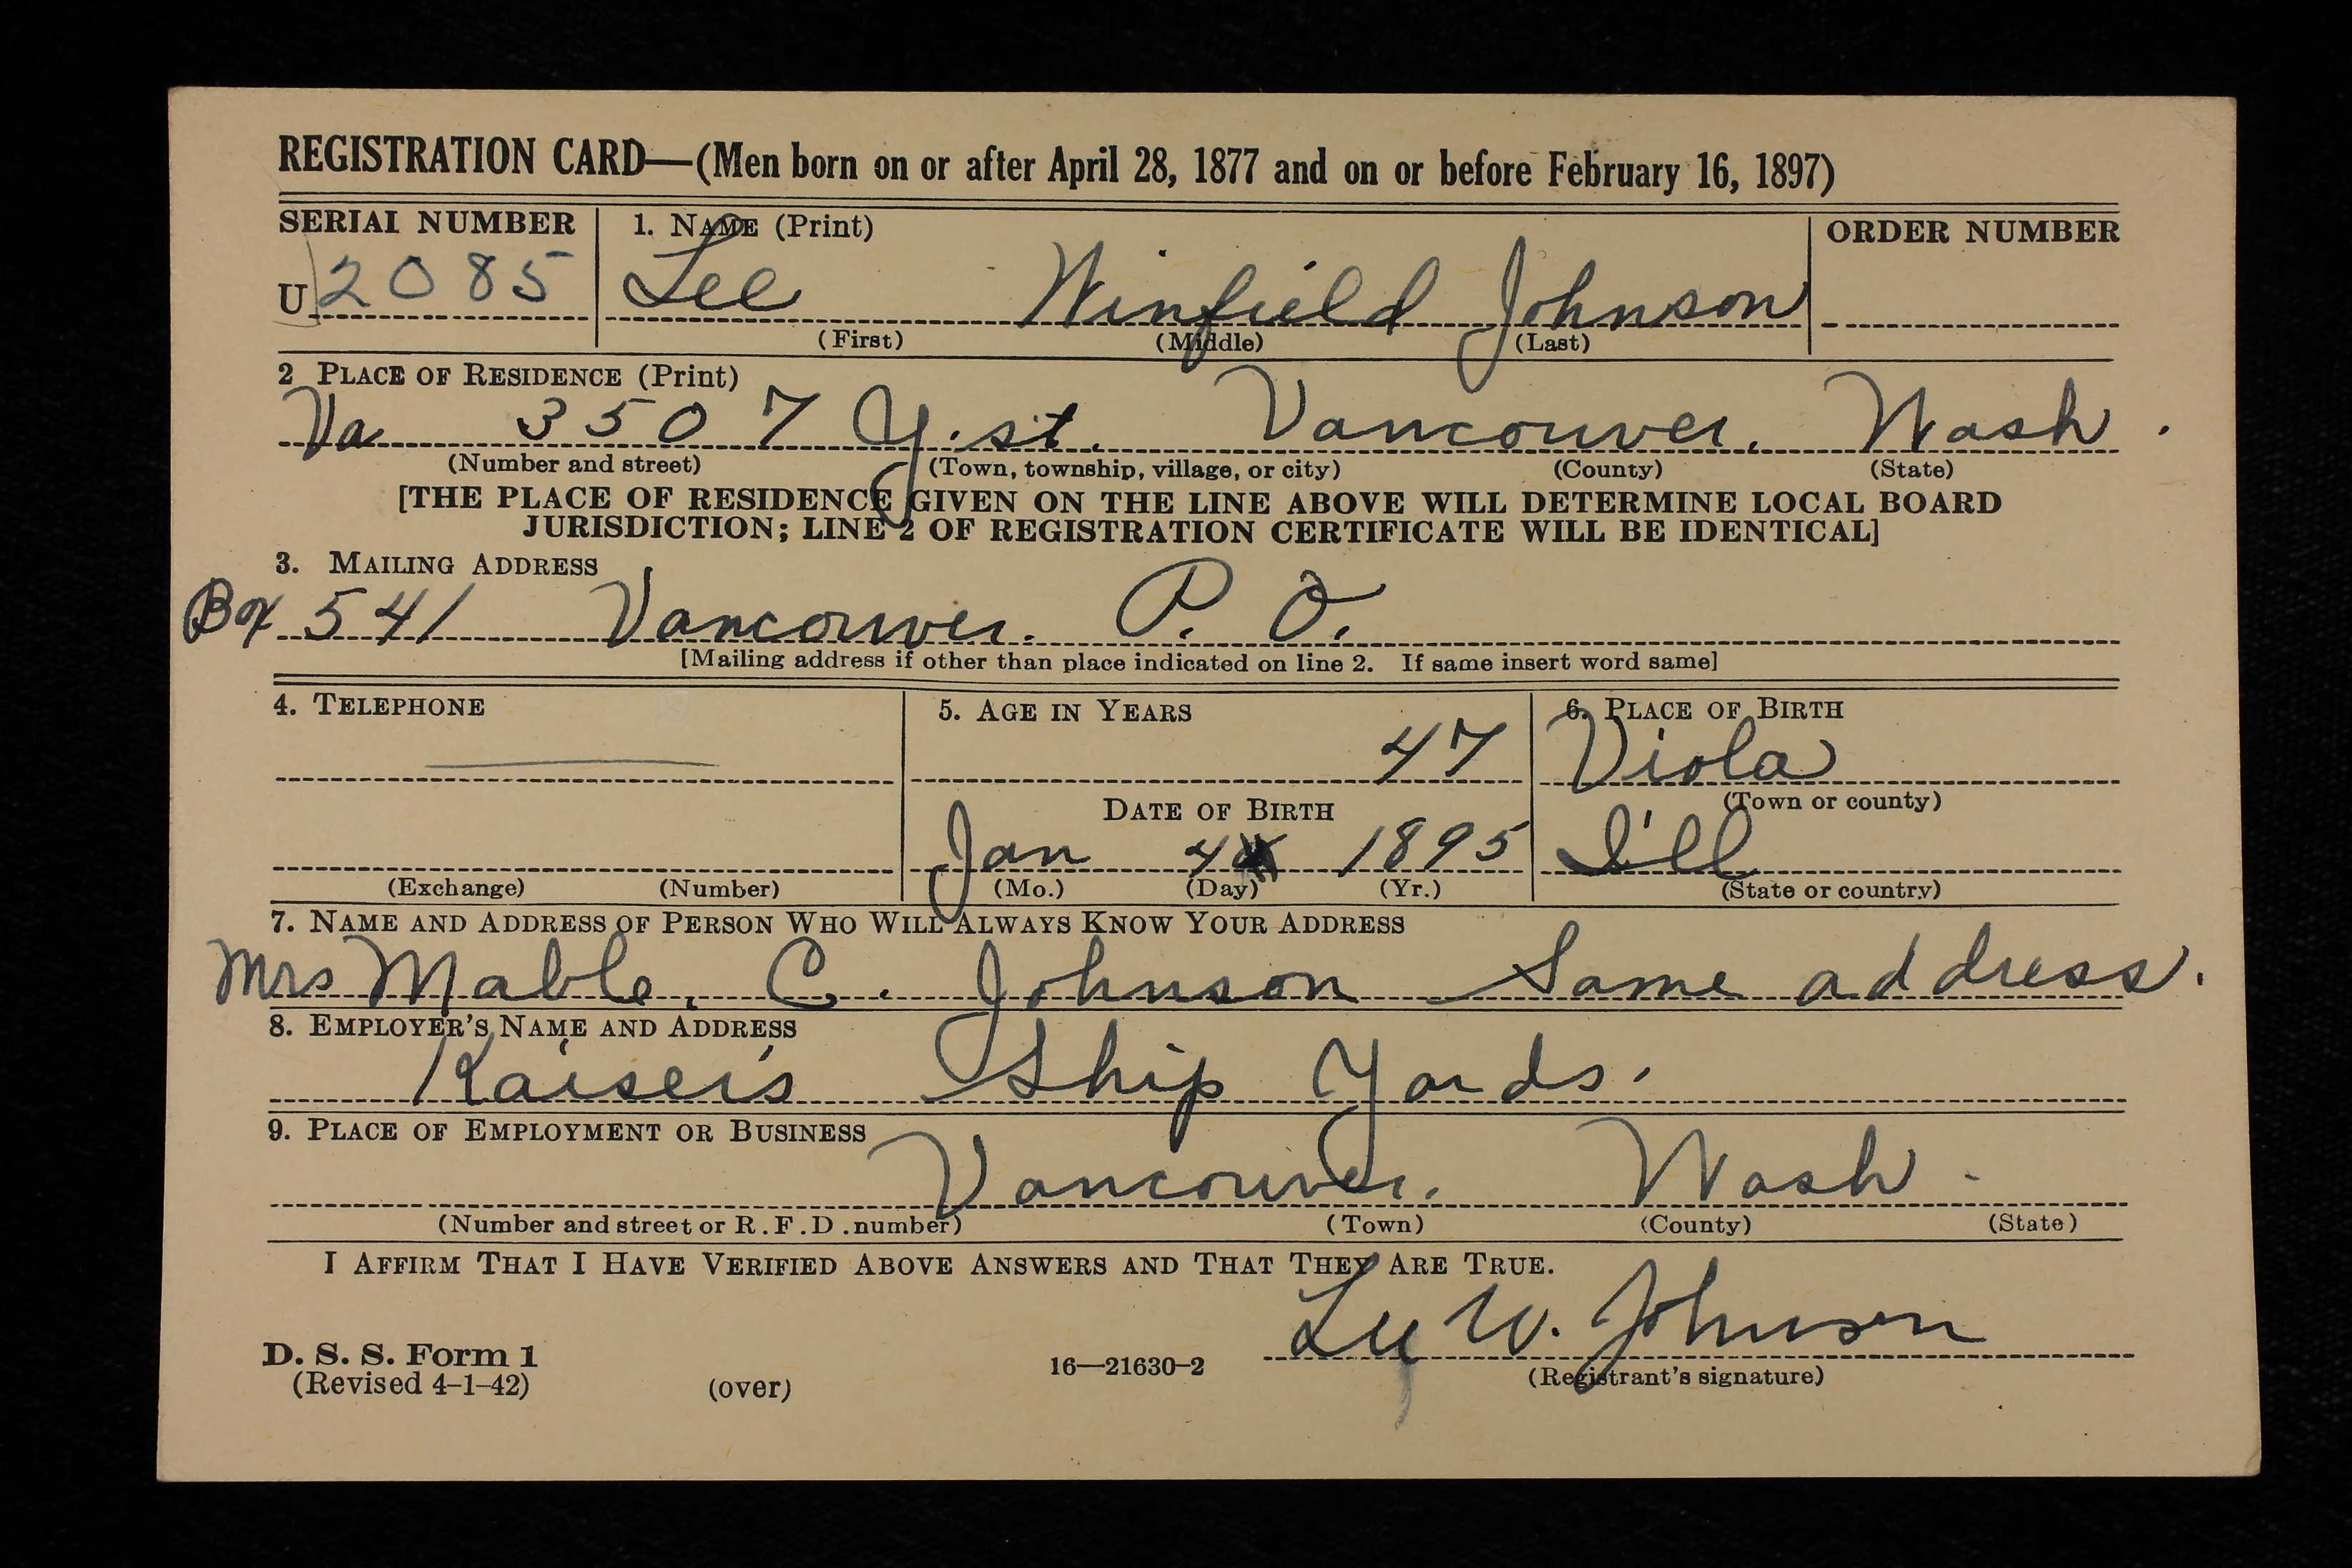 REGISTRATION CARD—(Men born on or after April 28, 1877 and on or before February 16, 1897)
SERIAL NUMBER 1. NAME (Print) ORDER NUMBER
U 2085 Lee Winfield Johnson
(First) (Middle) (Last)
2 PLACE OF RESIDENCE (Print)
Va 3507 Y. st. Vancouver. Wash.
(Number and street) (Town, township, village, or city) (County) (State)
[THE PLACE OF RESIDENCE GIVEN ON THE LINE ABOVE WILL DETERMINE LOCAL BOARD
JURISDICTION; LINE 2 OF REGISTRATION CERTIFICATE WILL BE IDENTICAL]
3. MAILING ADDRESS
Box 541 Vancouver. P. O.
[Mailing address if other than place indicated on line 2. If same insert word same]
4. TELEPHONE 5. AGE IN YEARS 6. PLACE OF BIRTH
47 Viola
DATE OF BIRTH (Town or county)
Jan 4 1895 Ill
(Exchange) (Number) (Mo.) (Day) (Yr.) (State or country)
7. NAME AND ADDRESS OF PERSON WHO WILL ALWAYS KNOW YOUR ADDRESS
Mrs Mable. C. Johnson Same address.
8. EMPLOYER'S NAME AND ADDRESS
Kaiser's Ship Yards.
9. PLACE OF EMPLOYMENT OR BUSINESS
Vancouver. Wash.
(Number and street or R.F.D. number) (Town) (County) (State)
I AFFIRM THAT I HAVE VERIFIED ABOVE ANSWERS AND THAT THEY ARE TRUE.
Lee W. Johnson
D. S. S. Form 1
(Revised 4-1-42) (over) 16—21630-2 (Registrant's signature)